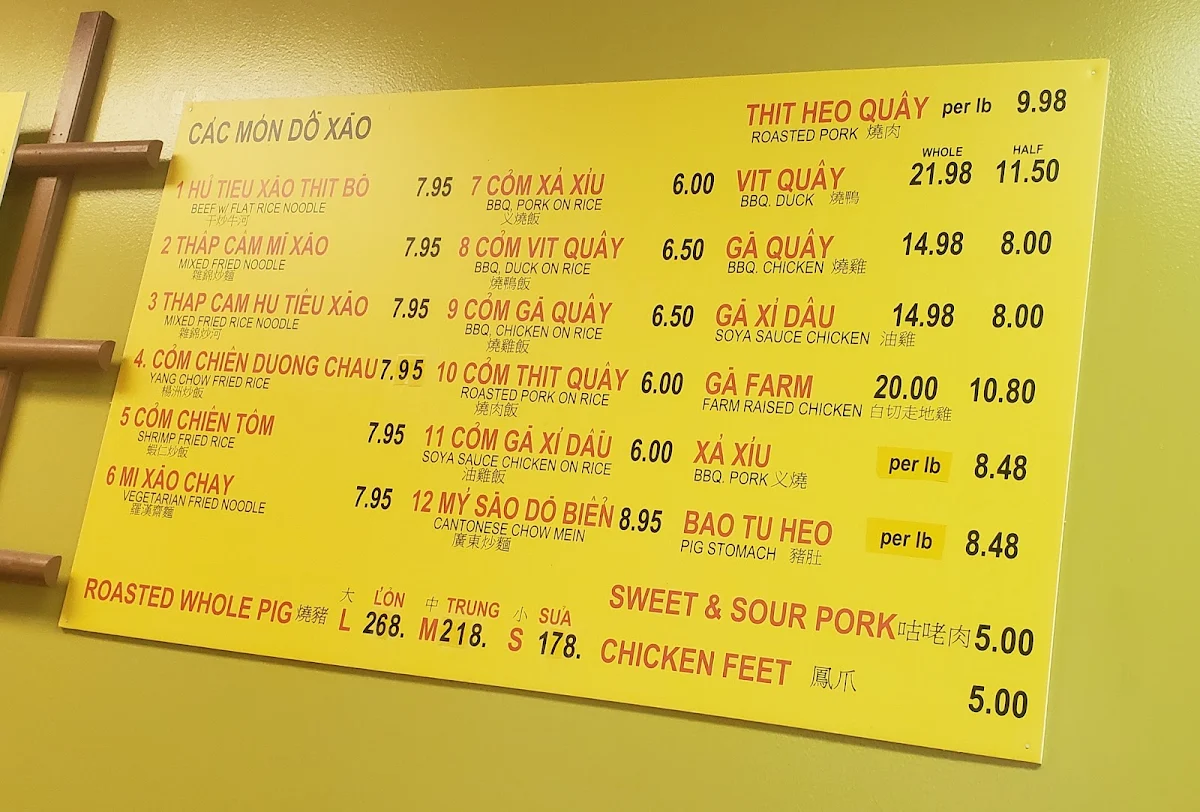 CÁC MÓN DỖ XÃO
1 HỦ TIEU XÃO THIT BÒ 7.95
BEEF w/ FLAT RICE NOODLE
干炒牛河
2 THẬP CẨM MĨ XÃO 7.95
MIXED FRIED NOODLE
雜錦炒麵
3 THAP CAM HU TIẾU XÃO 7.95
MIXED FRIED RICE NOODLE
雜錦炒河
4. CỎM CHIÊN DUONG CHAU 7.95
YANG CHOW FRIED RICE
楊洲炒飯
5 CỎM CHIÊN TÔM 7.95
SHRIMP FRIED RICE
蝦仁炒飯
6 MI XÀO CHAY 7.95
VEGETARIAN FRIED NOODLE
羅漢齋麵
7 CỎM XẢ XÍU 6.00
BBQ, PORK ON RICE
义燒飯
8 CỎM VIT QUÂY 6.50
BBQ, DUCK ON RICE
燒鴨飯
9 CỎM GÃ QUÂY 6.50
BBQ, CHICKEN ON RICE
燒雞飯
10 CỎM THIT QUÂY 6.00
ROASTED PORK ON RICE
燒肉飯
11 CỎM GÃ XÌ DÂŨ 6.00
SOYA SAUCE CHICKEN ON RICE
油雞飯
12 MỲ SÃO DỖ BIỂN 8.95
CANTONESE CHOW MEIN
廣東炒麵
THIT HEO QUÂY per lb 9.98
ROASTED PORK 燒肉
WHOLE HALF
VIT QUÂY 21.98 11.50
BBQ. DUCK 燒鴨
GÃ QUÂY 14.98 8.00
BBQ. CHICKEN 燒雞
GÃ XÌ DÂU 14.98 8.00
SOYA SAUCE CHICKEN 油雞
GÃ FARM 20.00 10.80
FARM RAISED CHICKEN 白切走地雞
XẢ XÍU per lb 8.48
BBQ. PORK 义燒
BAO TU HEO per lb 8.48
PIG STOMACH 豬肚
大 LỚN 中 TRUNG 小 SUẢ
ROASTED WHOLE PIG 燒豬 L 268. M 218. S 178.
SWEET & SOUR PORK 咕咾肉 5.00
CHICKEN FEET 鳳爪 5.00